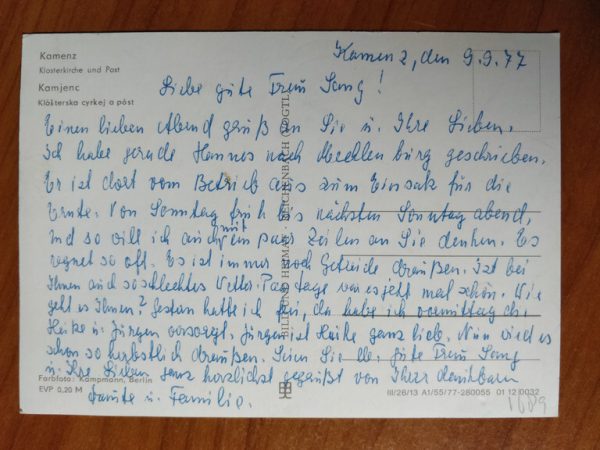 Kamenz
Klosterkirche und Post
Kamjenc
Klóšterska cyrkej a póst
Kamenz, den 9.9.77
Liebe gute Frau Lang!
Einen lieben Abend gruß an Sie u. Ihre Lieben.
Ich habe gerade Hannes nach Mecklenburg geschrieben.
Er ist dort vom Betrieb aus zum Einsatz für die
Ernte. Von Sonntag früh bis nächsten Sonntag abend,
und so will ich auch mit paar Zeilen an Sie denken. Es
regnet so oft. Es ist immer noch Getreide draußen. Ist bei
Ihnen auch so schlechtes Wetter. Paar tage war es jetzt mal schön. Wie
geht es Ihnen? Gestern hatte ich frei, da habe ich vormittag
Heike u. Jürgen versorgt. Jürgen ist Heike ganz lieb. Nun wird es
schon so herbstlich draußen. Seien Sie gute Frau Lang
u. Ihre Lieben ganz herzlichst gegrüßt von Ihrer dankbaren
u. Familie.
BILD UND HEIMAT · REICHENBACH (VOGTL)
Farbfoto: Kampmann, Berlin
EVP 0,20 M
III/26/13 A1/55/77-280055 01 12 0032
1689